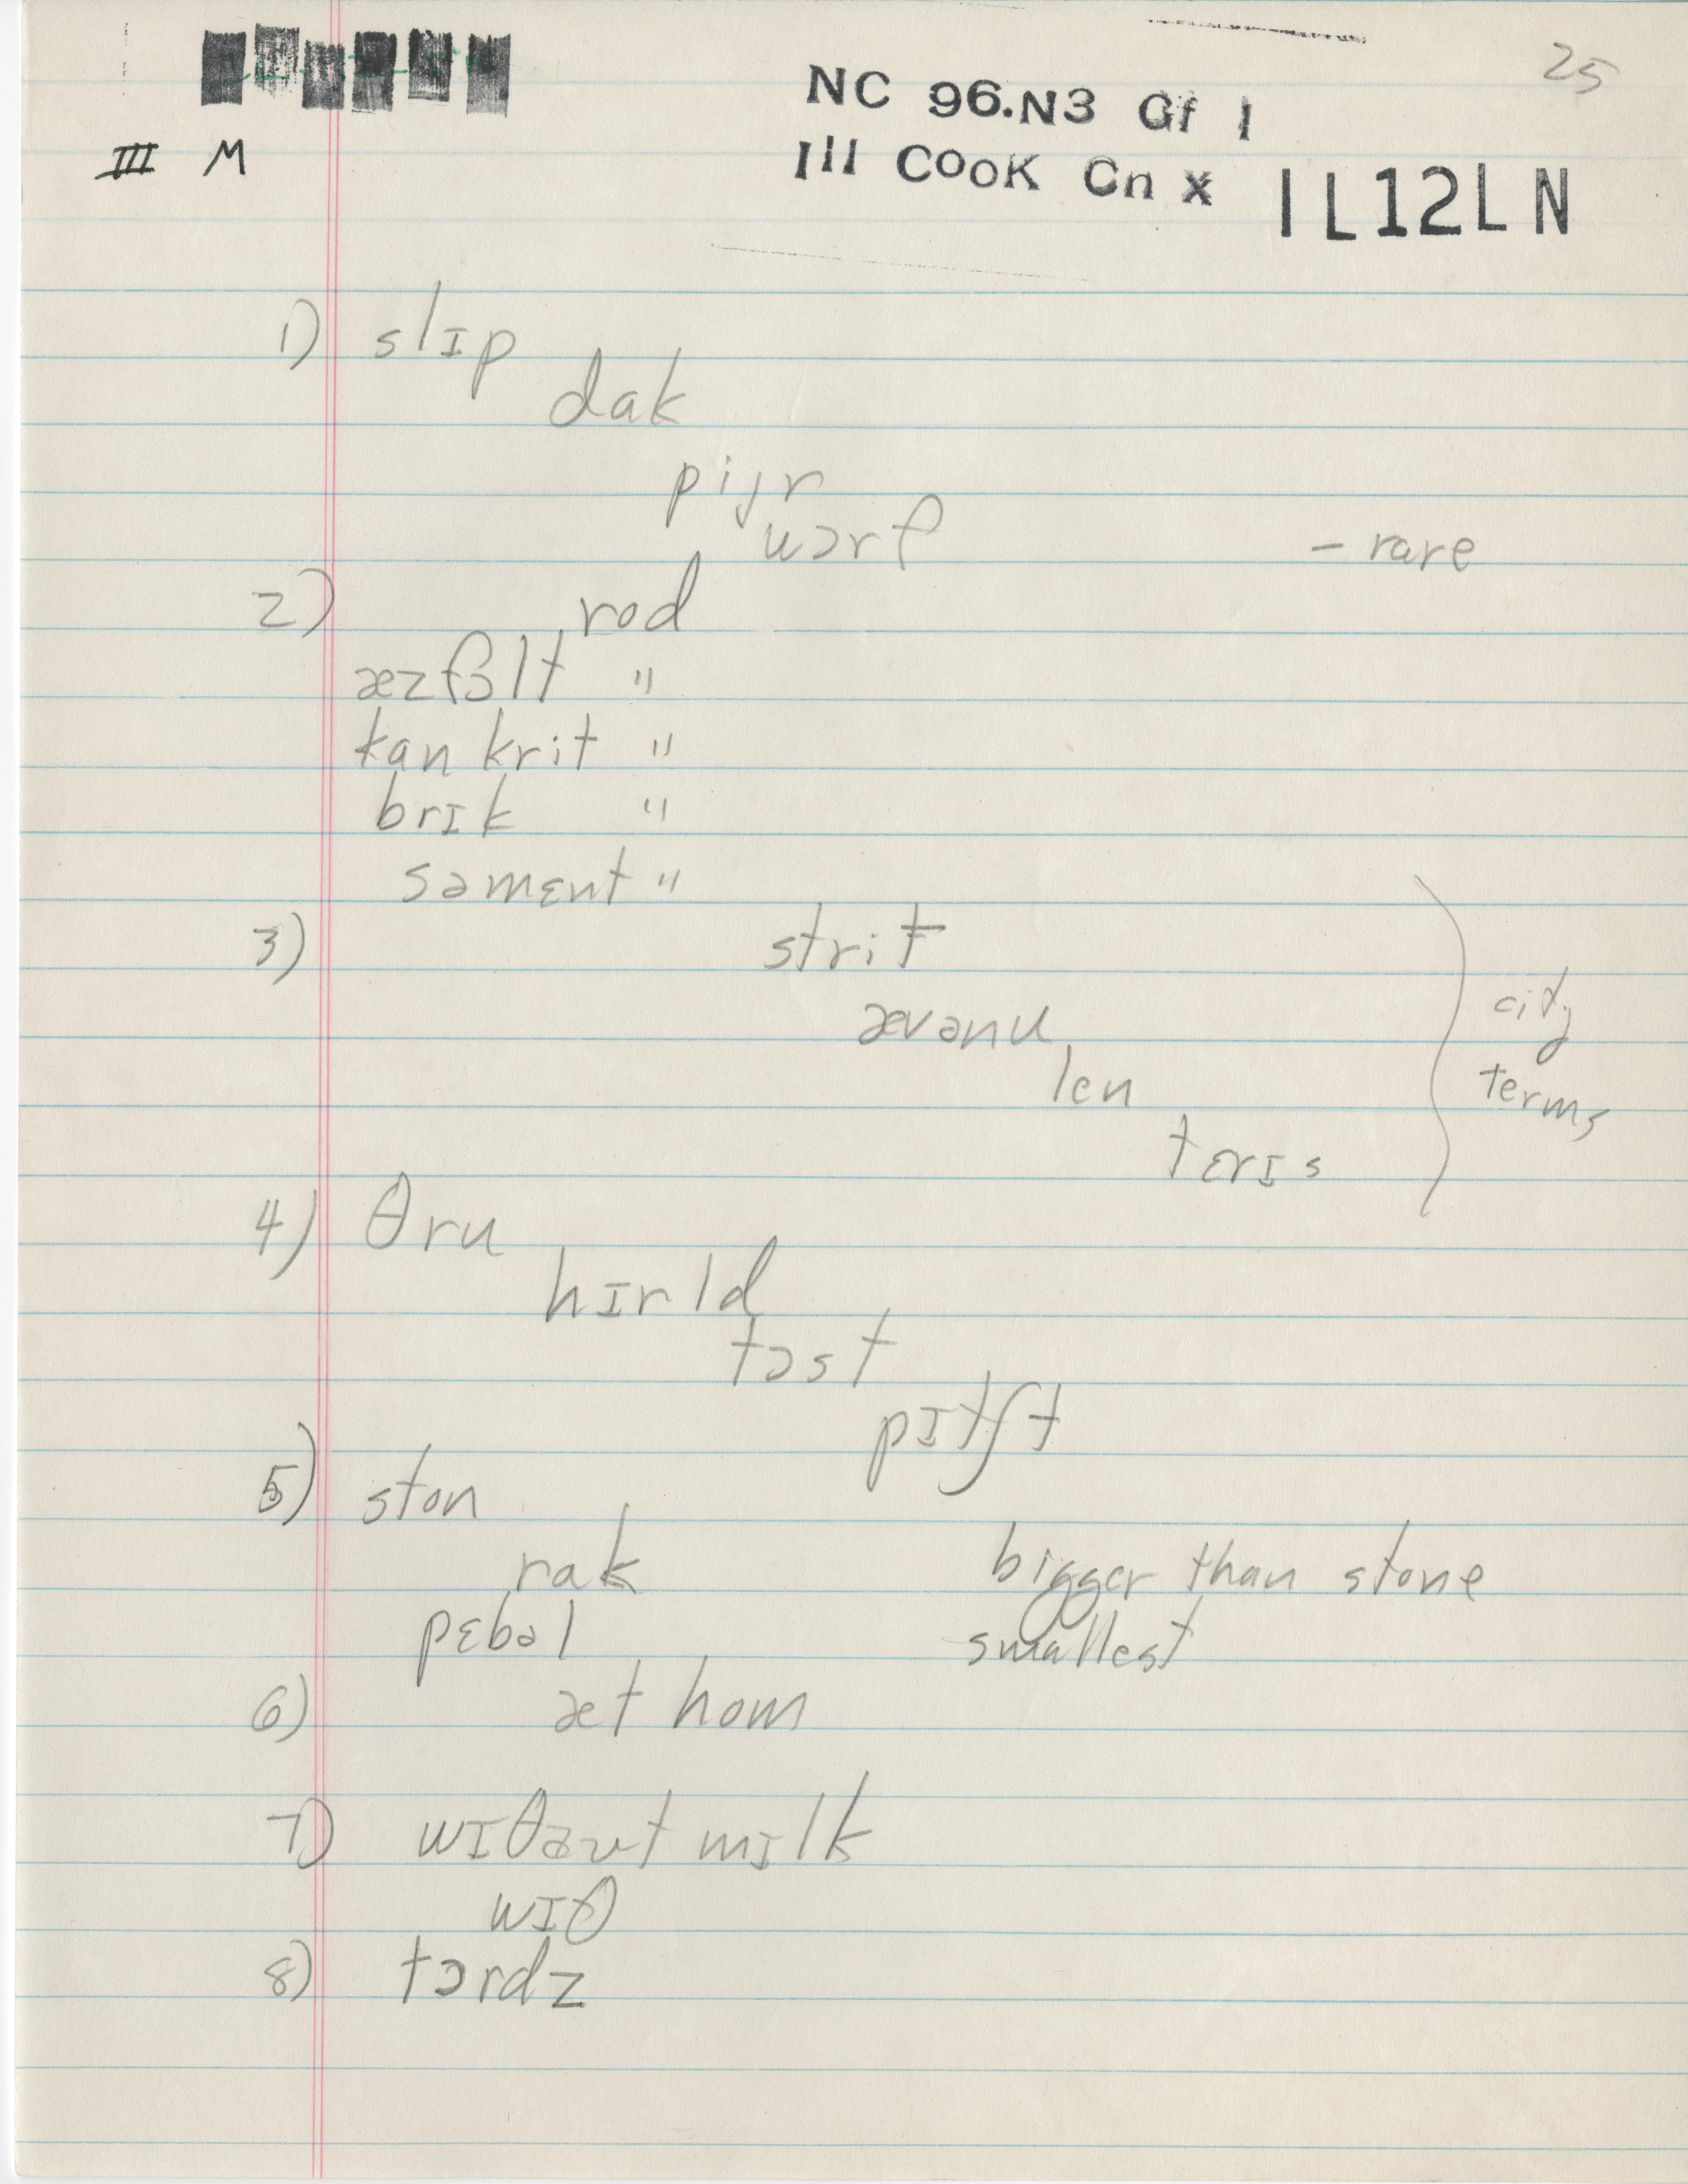 25
NC 96.N3 Gf 1
III M
Ill COOK Cn x IL12LN
1) slɪp
dak
pijr
wɔrf – rare
2) rod
æzfɔlt "
kan krit "
brɪk "
səmɛnt "
3) strit
ævənu
len
tɛrɪs
city
terms
4) θru
hɪrld
tɔst
pɪtʃt
5) ston
rak bigger than stone
pɛbəl smallest
6) æt hom
7) wɪθaut mɪlk
wɪθ
8) tɔrdz